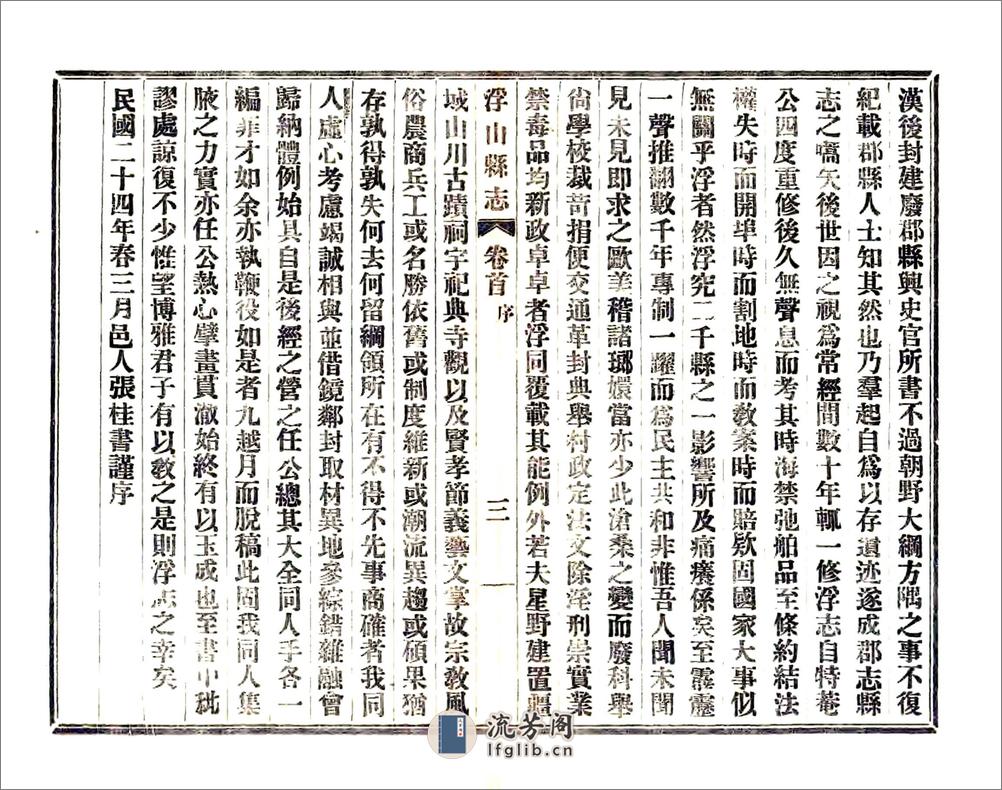 漢後封建廢郡縣興史官所書不過朝野大綱方隅之事不復
紀載郡縣人士知其然也乃羣起自爲以存遺迹遂成郡志縣
志之嚆矢後世因之視爲常經間數十年輒一修浮志自特菴
公四度重修後久無聲息而考其時海禁弛舶品至條約結法
權失時而開埠時而割地時而敎案時而賠欵固國家大事似
無關乎浮者然浮究二千縣之一影響所及痛癢係矣至霹靂
一聲推翻數千年專制一躍而爲民主共和非惟吾人聞未聞
見未見即求之歐美稽諸瑯嬛當亦少此滄桑之變而廢科舉
尙學校裁苛捐便交通革封典舉村政定法文除淫刑崇實業
禁毒品均新政卓卓者浮同覆載其能例外若夫星野建置疆
浮山縣志 卷首 序 三
域山川古蹟祠宇祀典寺觀以及賢孝節義藝文掌故宗敎風
俗農商兵工或名勝依舊或制度維新或潮流異趨或碩果猶
存孰得孰失何去何留綱領所在有不得不先事商確者我同
人虛心考慮竭誠相與並借鏡鄰封取材異地參綜錯雜融會
歸納體例始具自是後經之營之任公總其大全同人手各一
編菲才如余亦執鞭役如是者九越月而脫稿此固我同人集
腋之力實亦任公熱心擘畫貫澈始終有以玉成也至書中紕
謬處諒復不少惟望博雅君子有以敎之是則浮志之幸矣
民國二十四年春三月邑人張桂書謹序
流芳阁
lfglib.cn